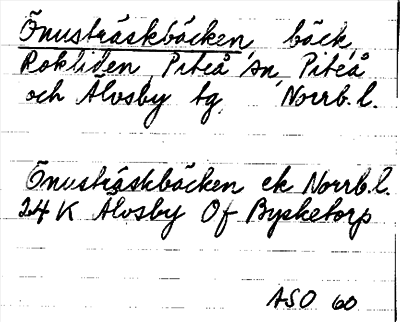 Önusträskbäcken, bäck,
Rokliden, Piteå sn, Piteå
och Älvsby tg, Norrb. l.
Önusträskbäcken ek Norrb. l.
24 K Älvsby Of Bysketorp
ASO 60